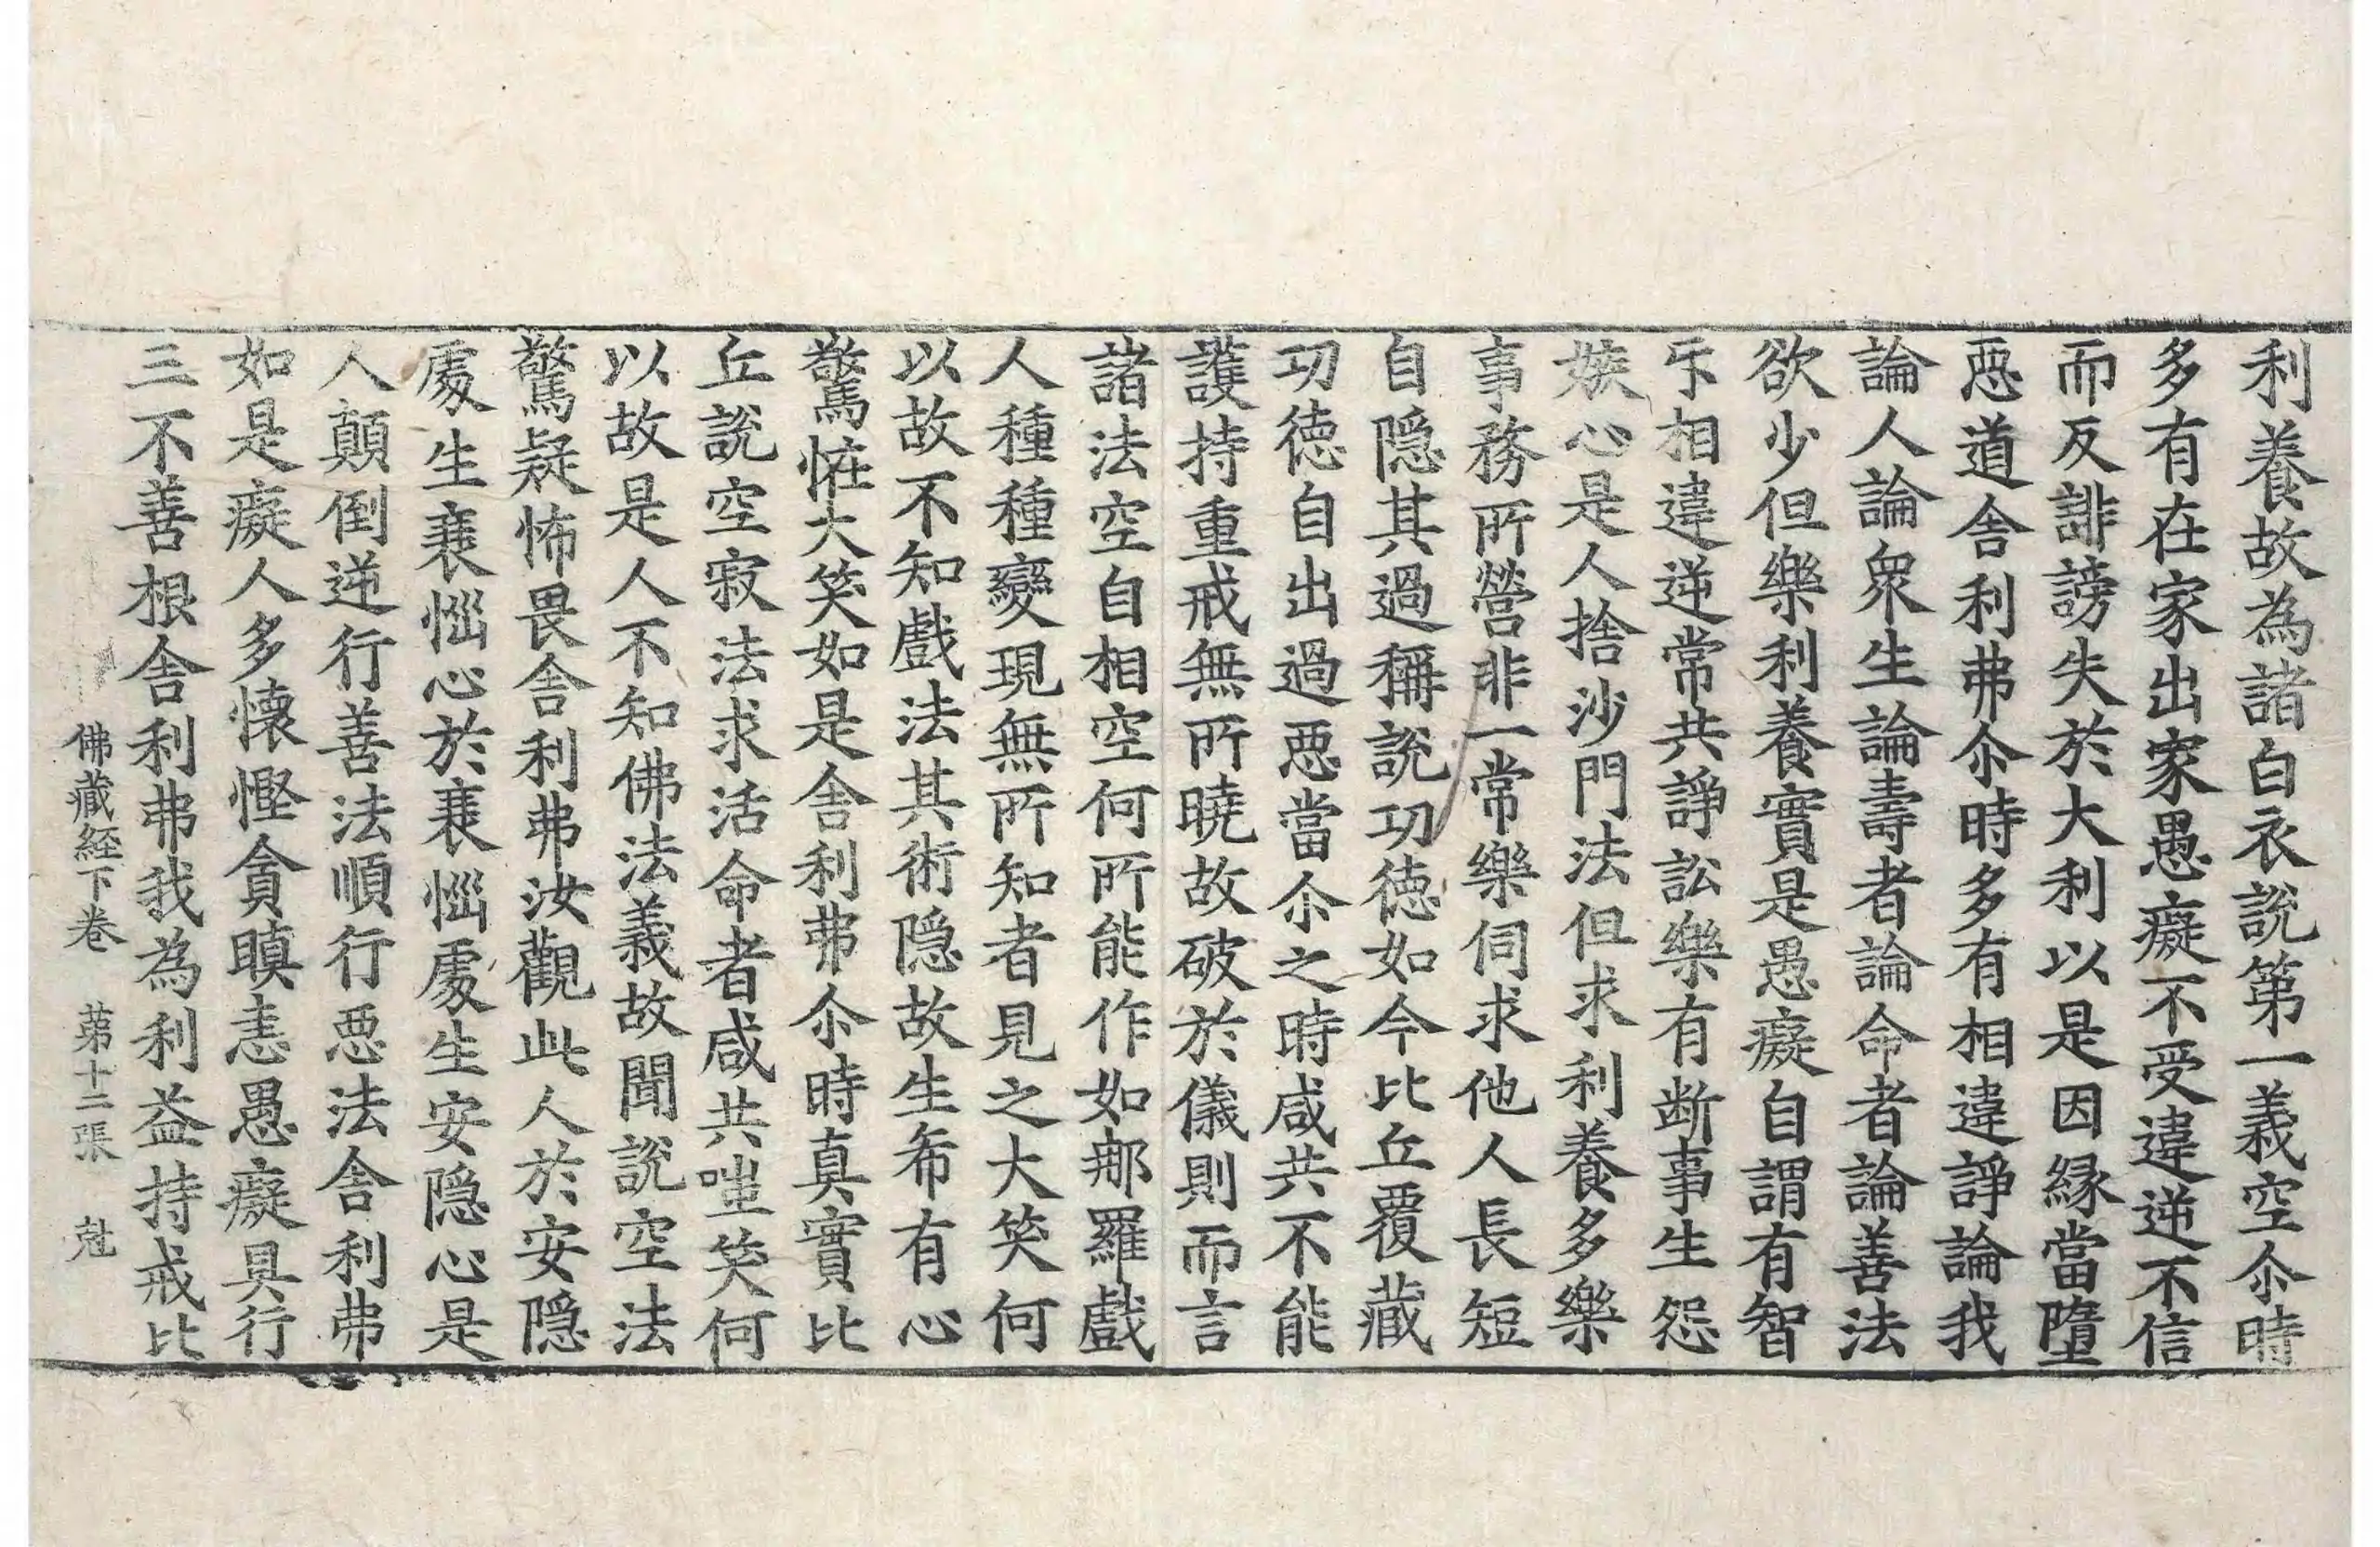 利養故為諸白衣說第一義空尒時
多有在家出家愚癡不受違逆不信
而反誹謗失於大利以是因縁當墮
惡道舍利弗尒時多有相違諍論我
論人論衆生論壽者論命者論善法
欲少但樂利養實是愚癡自謂有智
㸦相違逆常共諍訟樂有断事生怨
嫉心是人捨沙門法但求利養多樂
事務所營非一常樂伺求他人長短
自隐其過稱說功徳如今比丘覆藏
功徳自出過惡當尒之時咸共不能
護持重戒無所曉故破於儀則而言
諸法空自相空何所能作如那羅戲
人種種變現無所知者見之大笑何
以故不知戲法其術隐故生希有心
驚恠大笑如是舍利弗尒時真實比
丘說空寂法求活命者咸共嗤笑何
以故是人不知佛法義故聞說空法
驚疑怖畏舍利弗汝觀此人於安隐
處生衰惱心於衰惱處生安隐心是
人顛倒逆行善法順行惡法舍利弗
如是癡人多懷慳貪瞋恚愚癡具行
三不善根舍利弗我為利益持戒比
佛藏経下卷 第十二張 尅